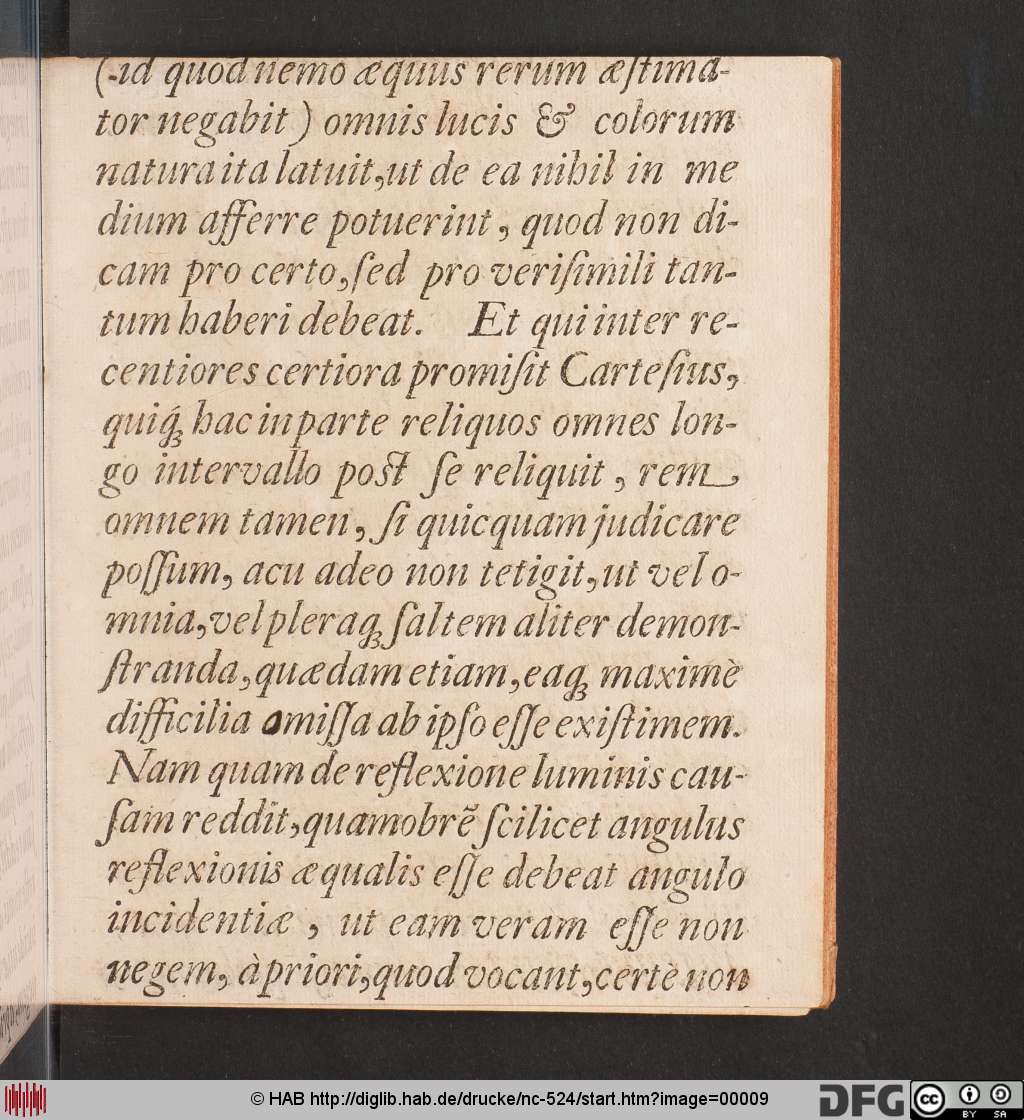 (id quod nemo æquus rerum æſtima-
tor negabit ) omnis lucis & colorum
natura ita latuit, ut de ea nihil in me
dium afferre potuerint, quod non di-
cam pro certo, ſed pro veriſimili tan-
tum haberi debeat. Et qui inter re-
centiores certiora promiſit Carteſius,
quiq́ꝫ hac in parte reliquos omnes lon-
go intervallo poſt ſe reliquit, rem
omnem tamen, ſi quicquam judicare
poſſum, acu adeo non tetigit, ut vel o-
mnia, vel pleraqꝫ ſaltem aliter demon-
ſtranda, quædam etiam, eaqꝫ maximè
difficilia omiſſa ab ipſo eſſe exiſtimem.
Nam quam de reflexione luminis cau-
ſam reddit, quamobrẽ ſcilicet angulus
reflexionis æqualis eſſe debeat angulo
incidentiæ, ut eam veram eſſe non
negem, à priori, quod vocant, certè non
© HAB http://diglib.hab.de/drucke/nc-524/start.htm?image=00009
DFG
cc
BY SA